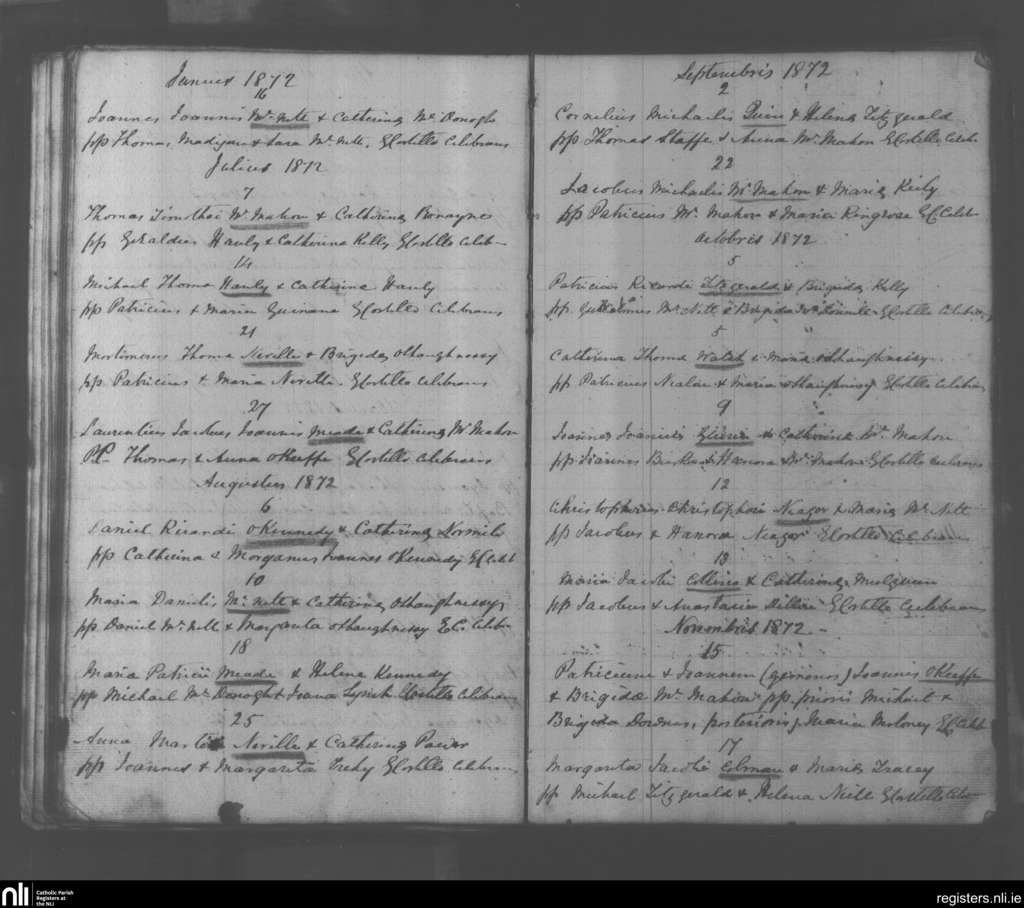 Junius 1872
16
Joannes Joannis Mc Nill & Catherina Mc Donogh
pp Thomas Madigan & Sara Mc Nill. E Costello Celebrans
Julius 1872
7
Thomas Timothei Mc Mahon & Catherina Bonaynes
pp Geraldus Hanly & Catherina Kelly E Costello Celeb
14
Michael Thoma Hanly & Catherine Hanly
pp Patricius & Maria Guinane E Costello Celebrans
21
Mortimerus Thoma Neville & Brigida OShaughnessy
pp. Patricius & Maria Neville. E Costello Celebrans
27
Laurentius Jacobus Joannis Meade & Catherina Mc Mahon
PP Thomas & Anna OKeeffe E Costello Celebrans
Augustus 1872
6
Daniel Ricardi OKennedy & Catherina Normile
pp Catherina & Morganus Joannes OKennedy EC Celeb
10
Maria Danielis Mc Nill & Catherina OShaughnessy
pp Daniel Mc Nill & Margarita OShaughnessy E.C. Celeb
18
Maria Patricii Meade & Helena Kennedy
pp Michael Mc Donogh & Joana Lynch Costello Celebrans
25
Anna Martini Neville & Catherina Power
pp Joannes & Margarita Trehy E Costello Celebrans
Septembris 1872
2
Cornelius Michaelis Quin & Helena Fitzgerald
pp Thomas Sheffe & Anna Mc Mahon E Costello Celeb.
22
Jacobus Michaelis Mc Mahon & Maria Kiely
pp Patricius Mc Mahon & Maria Ringrose EC Celeb
Octobris 1872
5
Patricius Ricardi Fitzgerald & Brigida Kelly
pp. Gulielmus Mc Nill & Brigida E Costello Celebrans
5
Catherina Thoma Walsh & Maria OShaughnessy
pp Patricius Nealon & Maria OShaughnessy E Costello Celebrans
9
Joannes Joannis & Catherina Mc Mahon
pp Joannes Burke & Hanora Mc Mahon E Costello Celebrans
12
Christopherus Christopheri Neagor & Maria Mc Nill
pp Jacobus & Hanora Neagor E Costello Celebrans
13
Maria Jacobi Collins & Catherina Mulqueen
pp Jacobus & Anastasia Dillon E Costello Celebrans
Novembris 1872
15
Patricium & Joannem (geminos) Joannis OKeeffe
& Brigidæ Mc Mahon pp. prioris Michael &
Brigida posterioris, Maria Moloney EC Celeb
17
Margarita Jacobi Colman & Maria Tracey
pp Michael Fitzgerald & Helena Neill E Costello Celeb
nli
Catholic Parish
Registers at
the NLI
registers.nli.ie